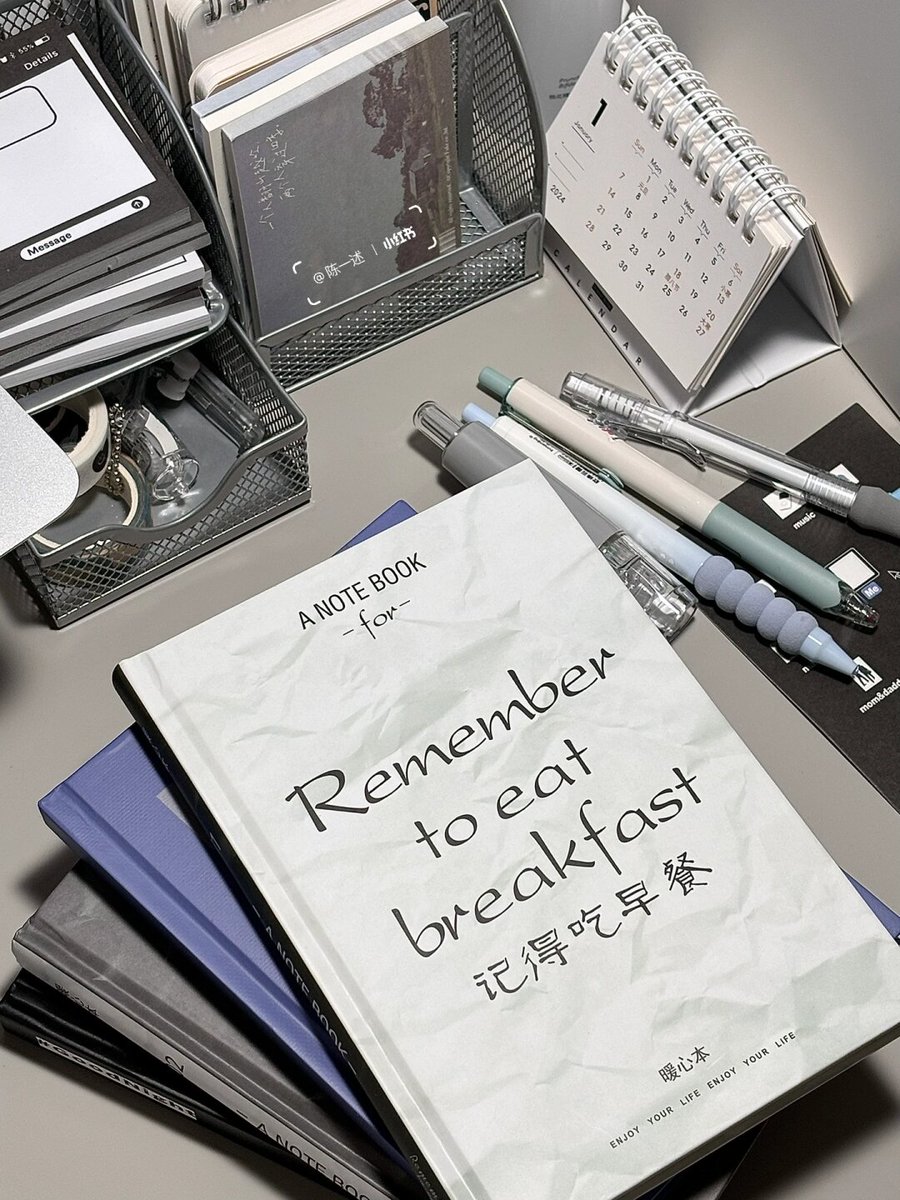 55%
Details
Message
一个人
两个人
@陈一述 | 小红书
1
January
2024
Sun Mon Tue Wed Thu Fri Sat
1 2 3 4 5 6
元旦 小寒
7 8 9 10 11 12 13
14 15 16 17 18 19 20
腊八节 大寒
21 22 23 24 25 26 27
28 29 30 31
CALENDAR
music
Me
mom&dadd
A NOTE BOOK
-for-
Remember
to eat
breakfast
记得吃早餐
暖心本
ENJOY YOUR LIFE ENJOY YOUR LIFE
A NOTE BOOK
2
A NOTE BOOK
#GOODNIGHT